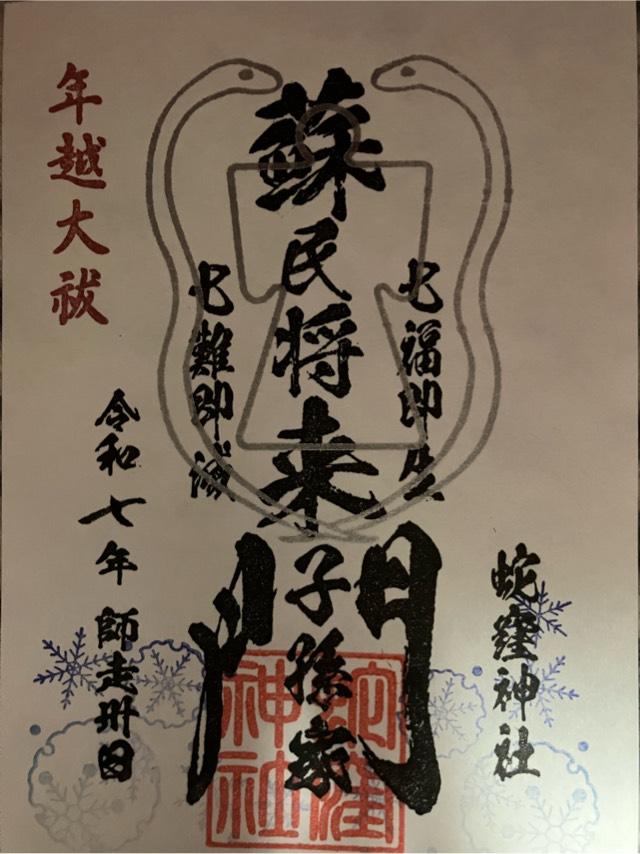 蛇窪神社
七福即生
蘇民将来
子孫家
門
七難即滅
年越大祓
令和七年 師走卅日
蛇窪
神社